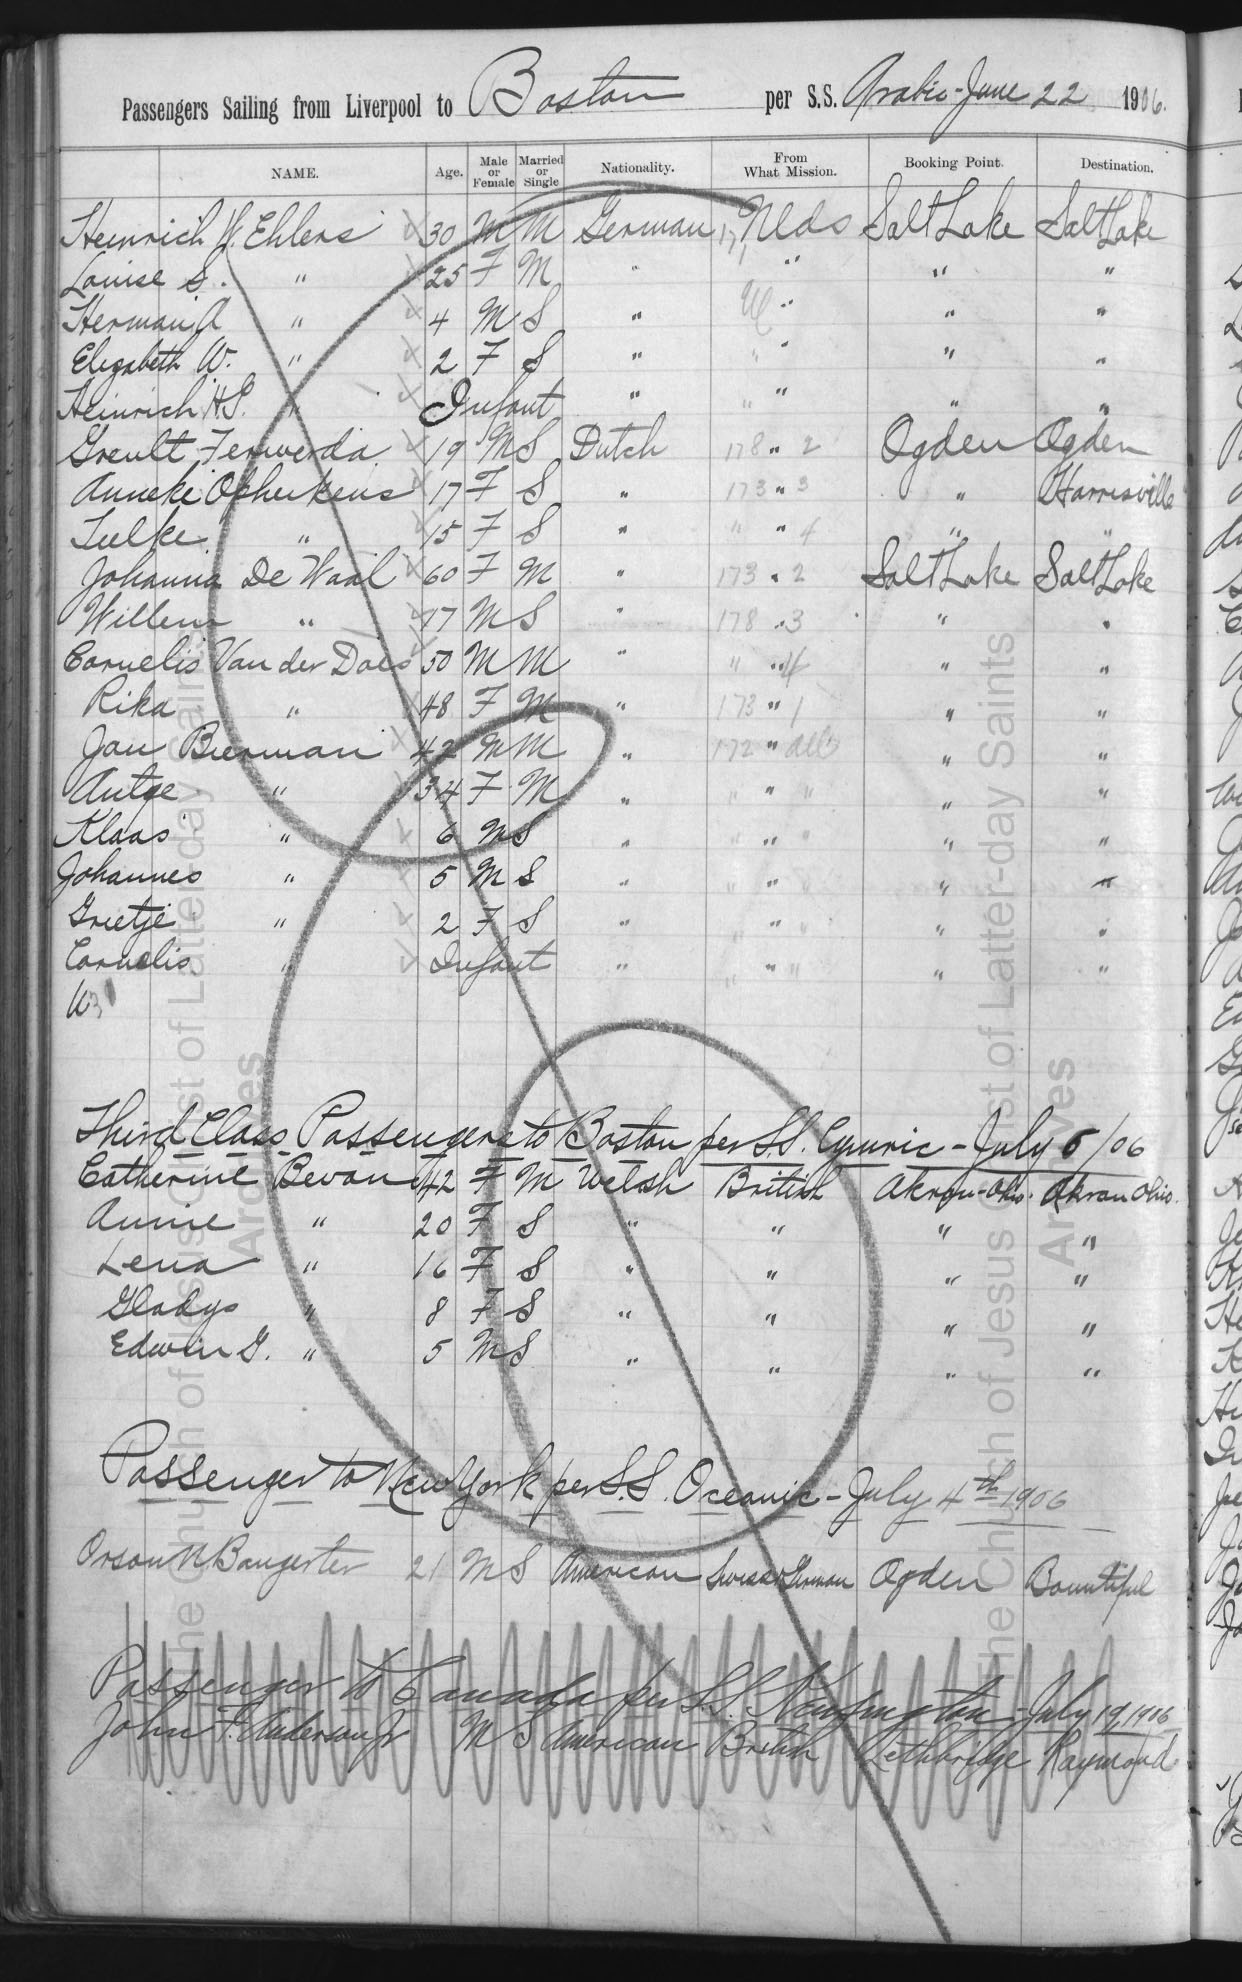 Passengers Sailing from Liverpool to Boston per S.S. Arabic - June 22 1906.
NAME. Age. Male or Female Married or Single Nationality. From What Mission. Booking Point. Destination.
Heinrich W. Ehlers 30 M M German Nlds Salt Lake Salt Lake
Louise S. " 25 F M " " " "
Herman A " 4 M S " " " "
Elizabeth W. " 2 F S " " " "
Heinrich H.G. " Infant " " " "
Greult Ferwerda 19 M S Dutch 178 " 2 Ogden Ogden
Anneke Opheikens 17 F S " 173 " 3 " Harrisville
Tulke " 15 F S " " " 4 " "
Johanna De Waal 60 F M " 173 " 2 Salt Lake Salt Lake
Willem " 17 M S " 178 " 3 " "
Cornelis Van der Does 50 M M " " " 4 " "
Rika " 48 F M " 173 " 1 " "
Jan Bierman 42 M M " 172 " all " "
Antje " 34 F M " " " " " "
Klaas " 6 M S " " " " "
Johannes " 5 M S " " " " " "
Grietje " 2 F S " " " " " "
Cornelis " Infant " " " " " "
Third Class Passengers to Boston per S.S. Cymric - July 5/06
Catherine Bevan 42 F M Welsh British Akron-Ohio. Akron Ohio.
Annie " 20 F S " " " "
Lena " 16 F S " " " "
Gladys " 8 F S " " " "
Edwin G. " 5 M S " " " "
Passenger to New York per S.S. Oceanic - July 4th 1906
Orson N Bangerter 21 M S American Swiss & German Ogden Bountiful
Passenger to Canada per S.S. - July 19, 1906
John F. Anderson Jr M S American British Lethbridge Raymond
The Church of Jesus Christ of Latter-day Saints
Archives
The Church of Jesus Christ of Latter-day Saints
Archives